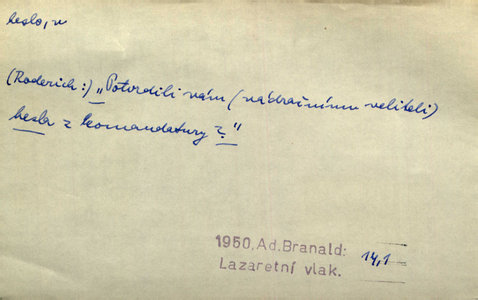 heslo, n
(Roderich:) „Potvrdili vám (nádražnímu veliteli)
hesla z komandatury?"
1950, Ad. Branald:
Lazaretní vlak.
14,1